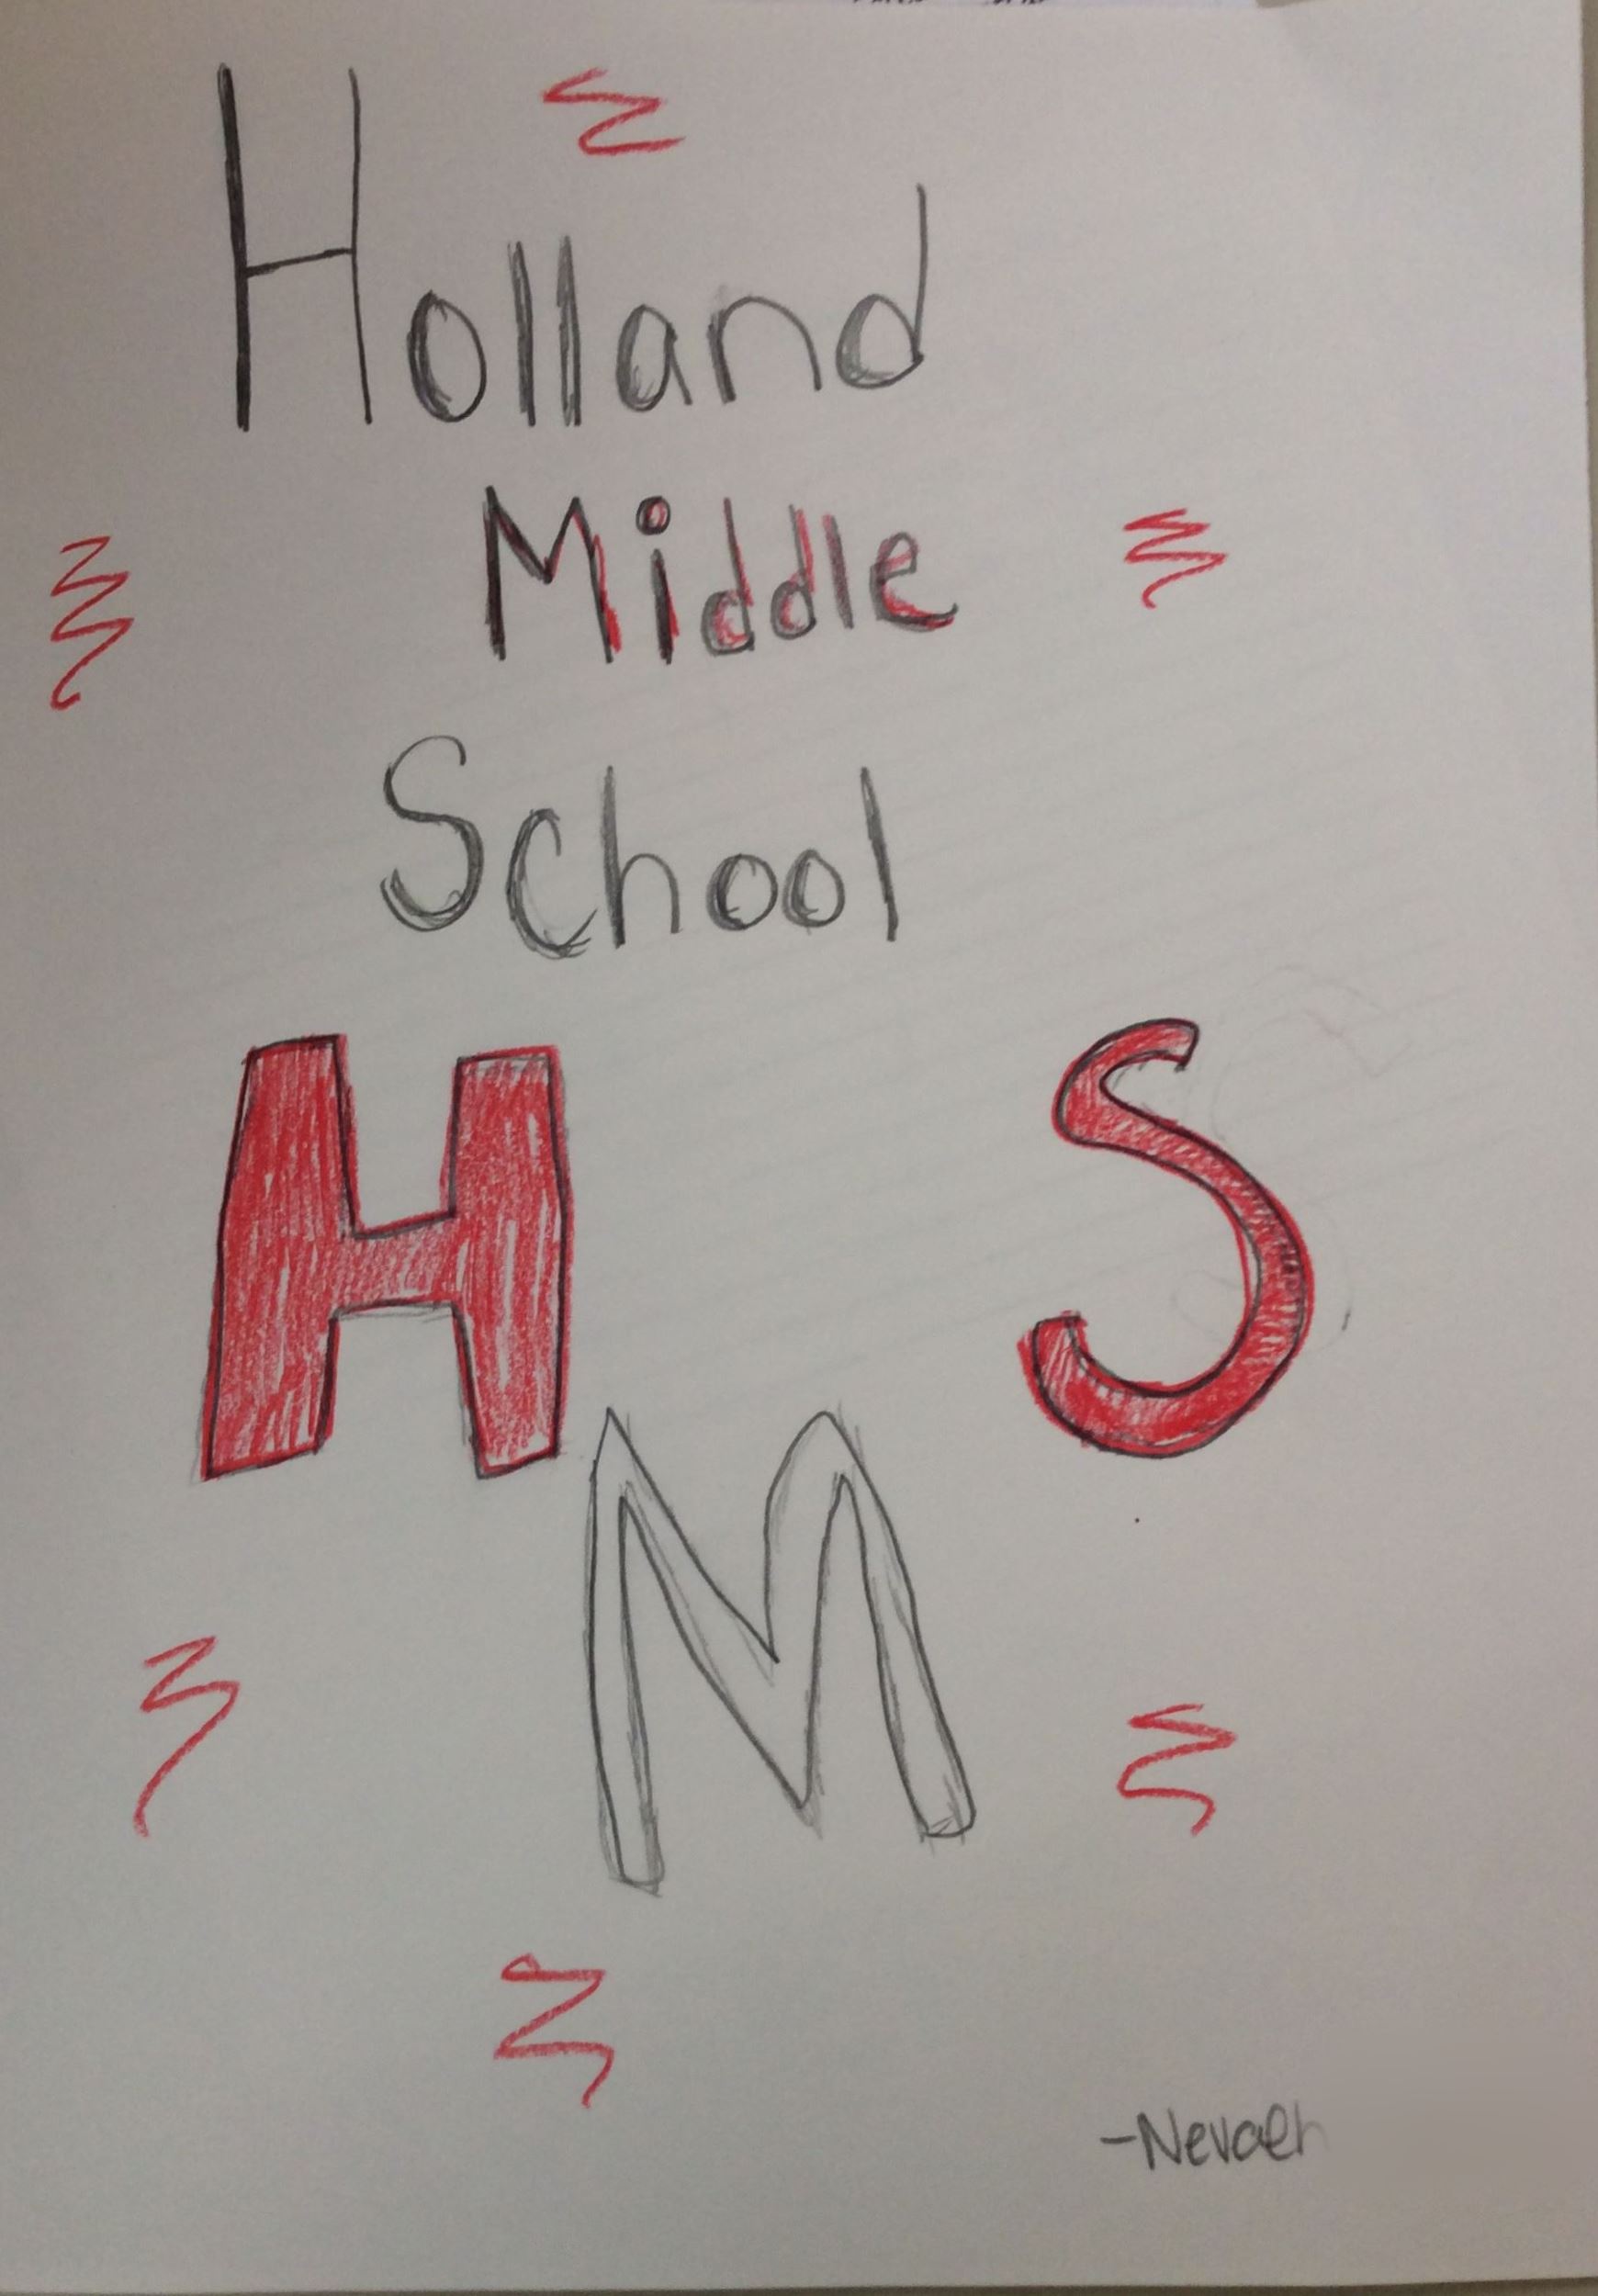 Holland
Middle
School
H S
M
-Nevaeh